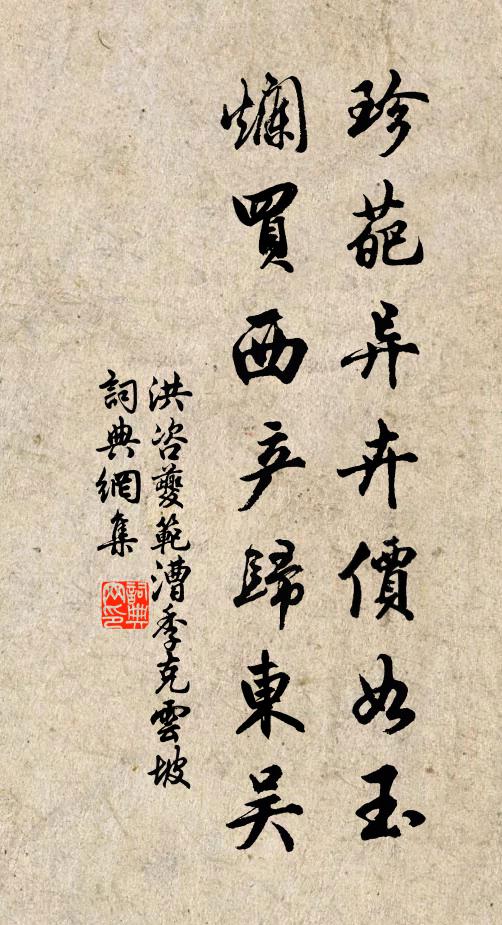 珍葩异卉價如玉
爛買西产歸東吴
洪咨夔範漕季克雲坡
詞典網集
詞典